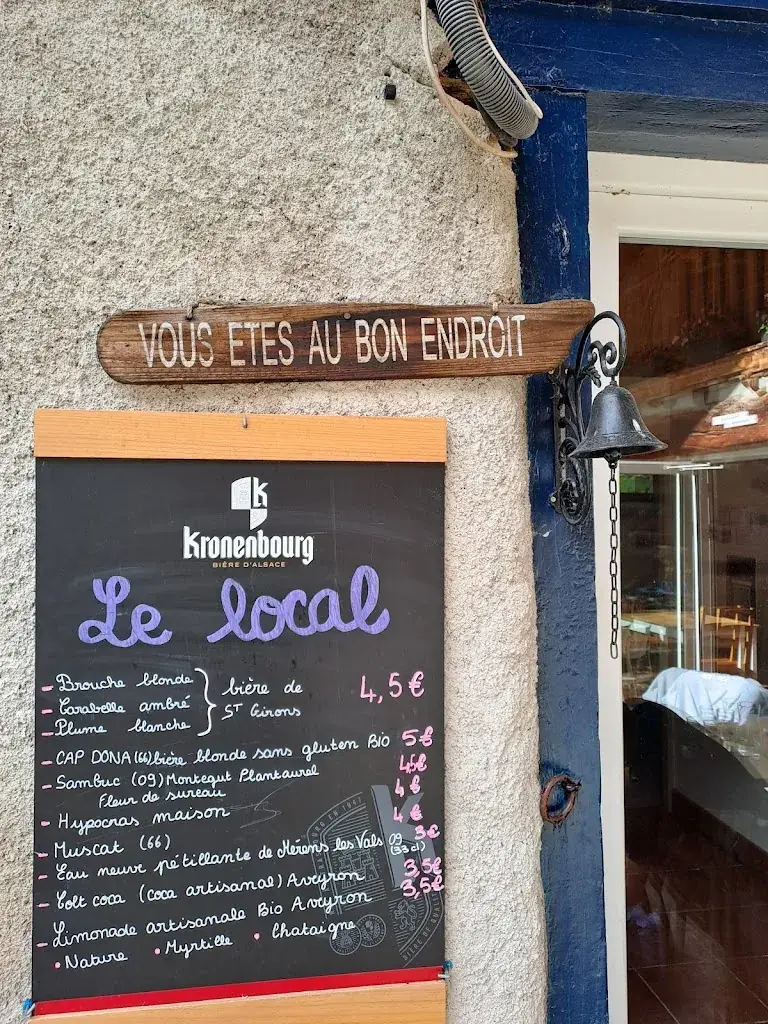 VOUS ETES AU BON ENDROIT
Kronenbourg
BIÈRE D'ALSACE
Le local
- Brouche blonde
- Carabelle ambré
- Plume blanche
bière de
ST Girons
4,5€
- CAP DONA (66) bière blonde sans gluten BIO 5€
- Sambuc (09) Montegut Plantaurel
Fleur de sureau
4,5€
- Hypocras maison 4€
- Muscat (66) 4€
- Eau neuve pétillante de Merens les Vals 09 (33cl) 3€
- Colt coca (coca artisanal) Aveyron 3,5€
- Limonade artisanale Bio Aveyron 3,5€
• Nature • Myrtille • Chataigne